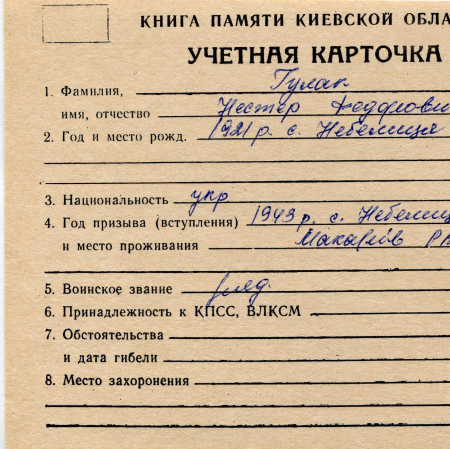 КНИГА ПАМЯТИ КИЕВСКОЙ ОБЛА
УЧЕТНАЯ КАРТОЧКА
1. Фамилия, Гулак
имя, отчество Нестер Федорови
2. Год и место рожд. 1921 р. с. Небелиця
3. Национальность укр
4. Год призыва (вступления) 1943 р. с. Небелиц
и место проживания Макарів РВ
5. Воинское звание ряд.
6. Принадлежность к КПСС, ВЛКСМ
7. Обстоятельства
и дата гибели
8. Место захоронения